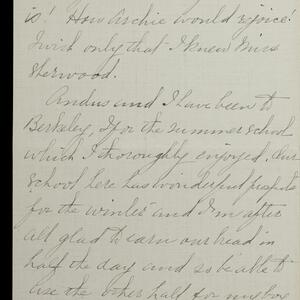 is! How Archie would rejoice!
I wish only that I knew Miss
Sherwood.
Andus and I have been to
Berkeley, I for the summer school
which I thoroughly enjoyed. Our
school here has wonderful prospects
for the winter and I'm after
all glad to earn our bread in
half the day and so be able to
use the other half for